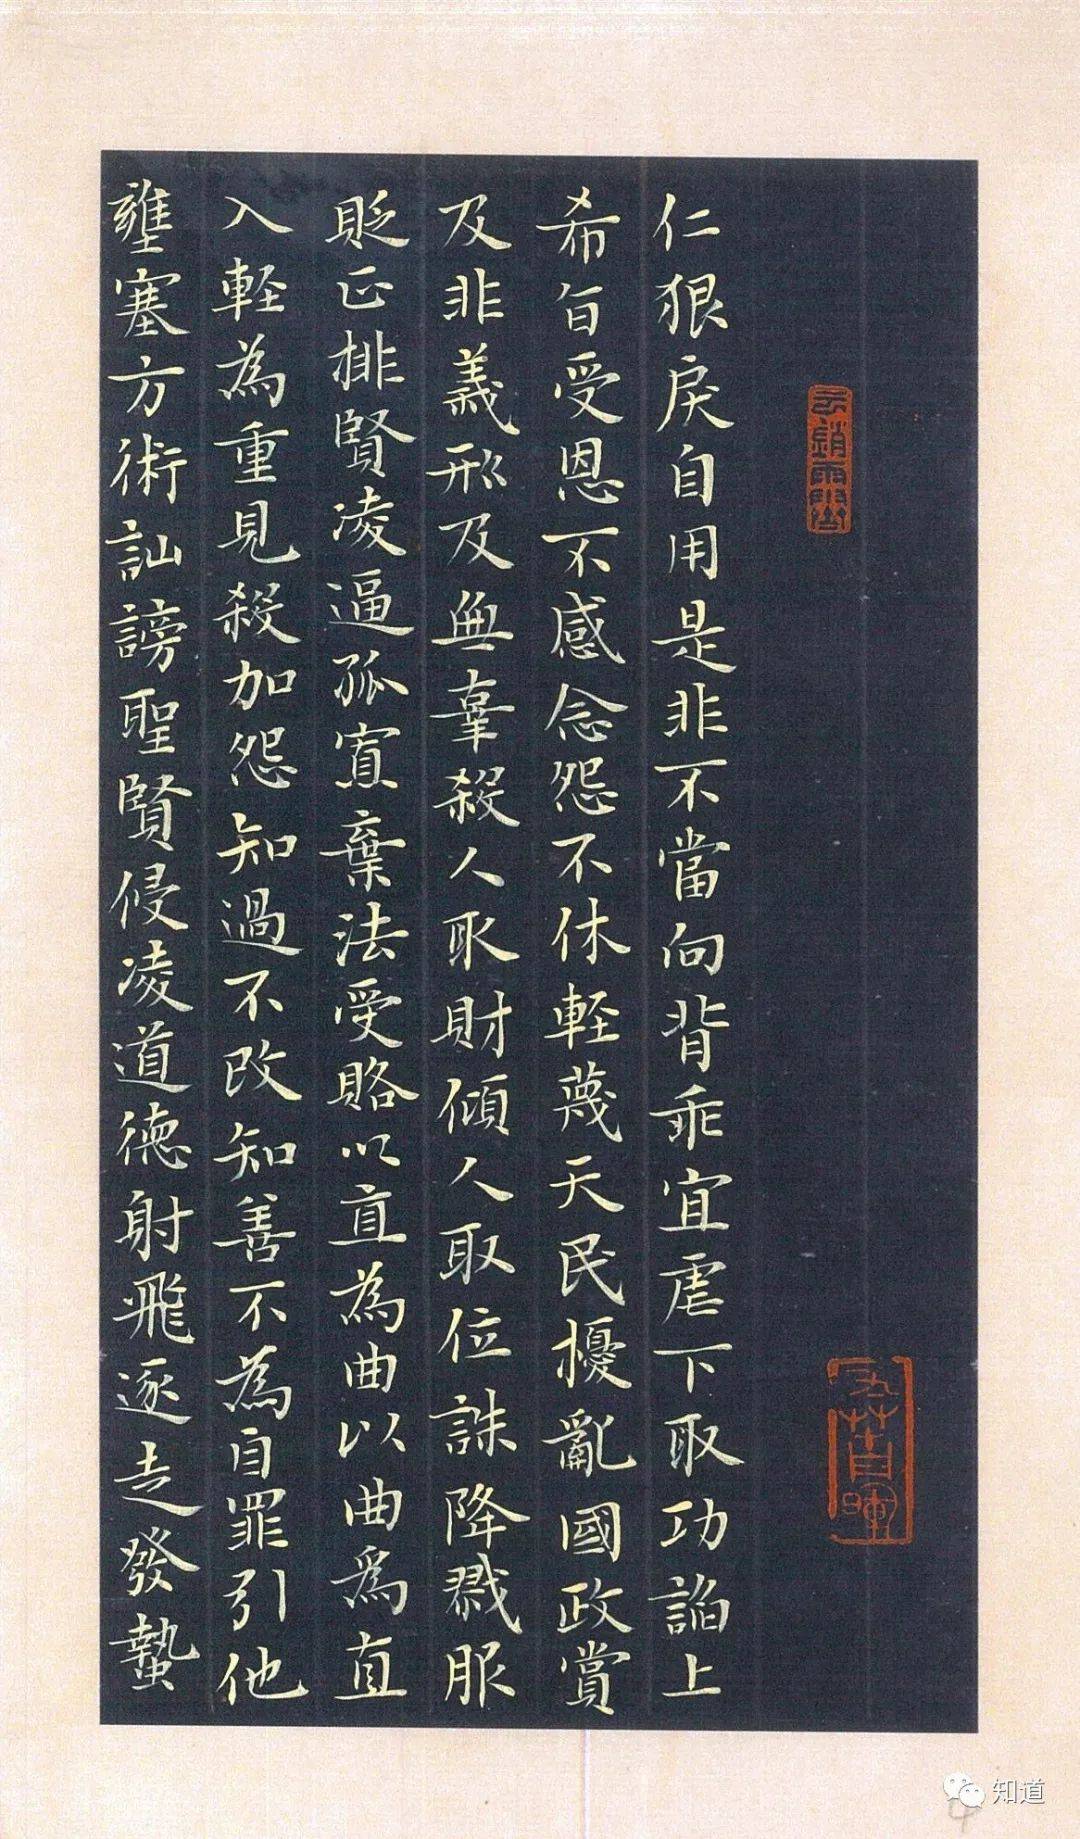 仁狠戾自用是非不當向背乖宜虐下取功諂上
希旨受恩不感念怨不休軽蔑天民擾亂國政賞
及非義形及無辜殺人取財傾人取位誅降戮服
貶正排賢凌逼孤寡棄法受賂以直為曲以曲為直
入軽為重見殺加怨知過不改知善不為自罪引他
壅塞方術訕謗聖賢侵凌道德射飛逐走發蟄
知道